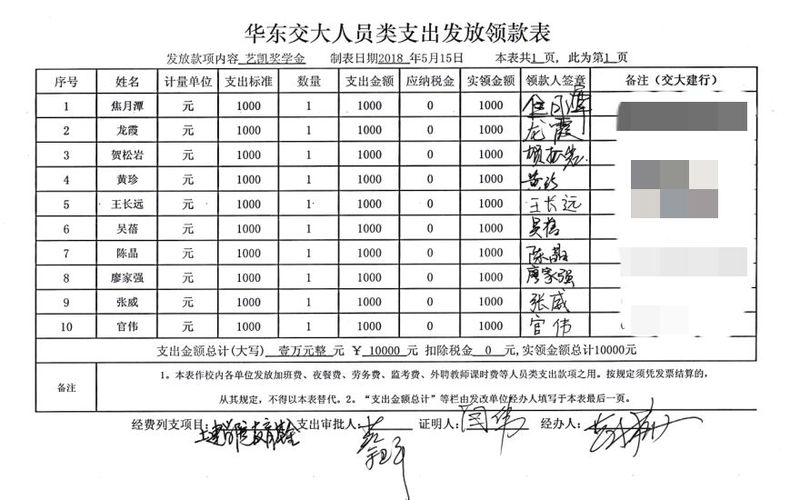 华东交大人员类支出发放领款表
发放款项内容 艺凯奖学金 制表日期2018 年5月15日 本表共1页，此为第1页
序号 姓名 计量单位 支出标准 数量 支出金额 应纳税金 实领金额 领款人签章 备注（交大建行）
1 焦月潭 元 1000 1 1000 0 1000
2 龙霞 元 1000 1 1000 0 1000 龙霞
3 贺松岩 元 1000 1 1000 0 1000
4 黄珍 元 1000 1 1000 0 1000 黄珍
5 王长远 元 1000 1 1000 0 1000 王长远
6 吴蓓 元 1000 1 1000 0 1000 吴蓓
7 陈晶 元 1000 1 1000 0 1000 陈晶
8 廖家强 元 1000 1 1000 0 1000 廖家强
9 张威 元 1000 1 1000 0 1000 张威
10 官伟 元 1000 1 1000 0 1000 官伟
支出金额总计(大写) 壹万元整 元 ¥ 10000 元 扣除税金 0 元,实领金额总计10000元
备注
1。本表作校内各单位发放加班费、夜餐费、劳务费、监考费、外聘教师课时费等人员类支出款项之用。按规定须凭发票结算的，
从其规定，不得以本表替代。2。“支出金额总计”等栏由发改单位经办人填写于本表最后一页。
经费列支项目: 支出审批人: 证明人: 闫伟 经办人: